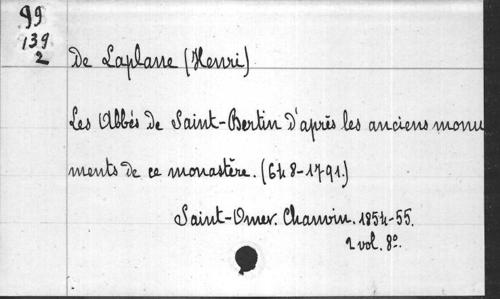 99
139
2
De Laplane (Henri)
Les Abbés de Saint-Bertin d'après les anciens monu
ments de ce monastère. (648-1791.)
Saint-Omer. Chanvin. 1854-55.
2 vol. 8º.